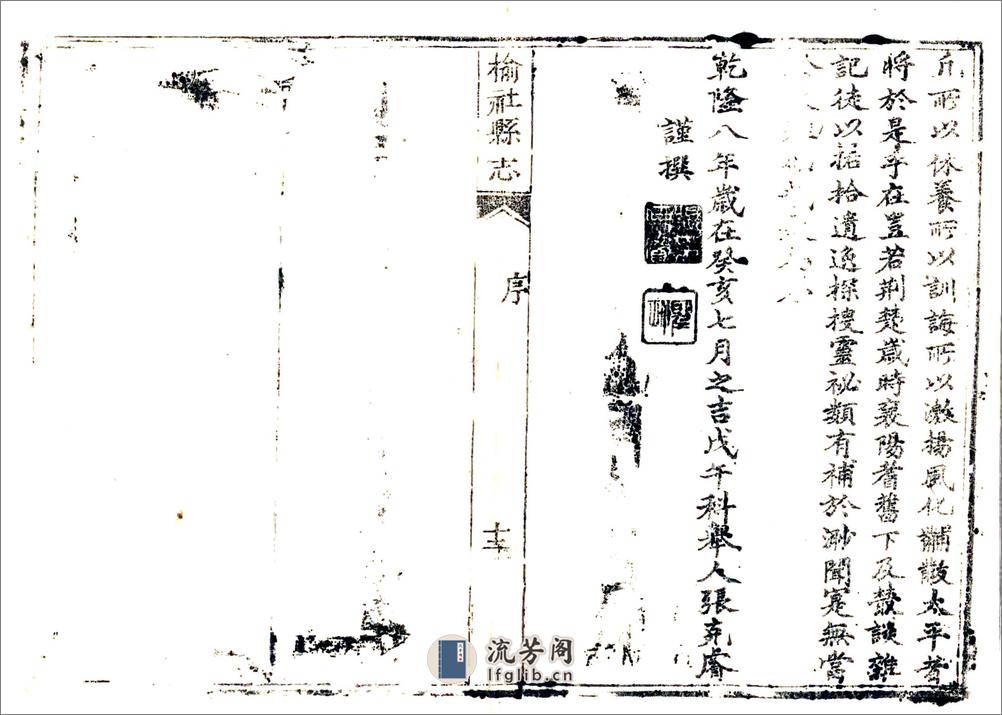 所以休養所以訓誨所以激揚風化黼黻太平者
將於是乎在豈若荆楚歲時襄陽耆舊下及叢談雜
記徒以掂拾遺逸探搜靈祕類有補於渺聞寔無當
乾隆八年歲在癸亥七月之吉戊午科舉人張克睿
謹撰
榆社縣志
序
流芳阁
lfglib.cn